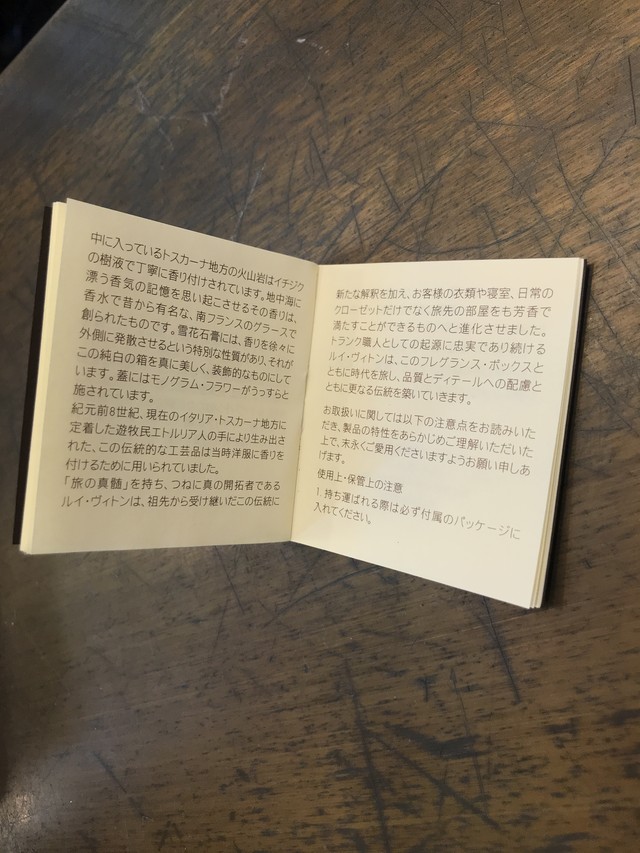 中に入っているトスカーナ地方の火山岩はイチジク
の樹液で丁寧に香り付けされています。地中海に
漂う香気の記憶を思い起こさせるその香りは、
香水で昔から有名な、南フランスのグラースで
創られたものです。雪花石膏には、香りを徐々に
外側に発散させるという特別な性質があり、それが
この純白の箱を真に美しく、装飾的なものにして
います。蓋にはモノグラム・フラワーがうっすらと
施されています。
紀元前8世紀、現在のイタリア・トスカーナ地方に
定着した遊牧民エトルリア人の手により生み出さ
れた、この伝統的な工芸品は当時洋服に香りを
付けるために用いられていました。
「旅の真髄」を持ち、つねに真の開拓者である
ルイ・ヴィトンは、祖先から受け継いだこの伝統に
新たな解釈を加え、お客様の衣類や寝室、日常の
クローゼットだけでなく旅先の部屋をも芳香で
満たすことができるものへと進化させました。
トランク職人としての起源に忠実であり続ける
ルイ・ヴィトンは、このフレグランス・ボックスと
ともに時代を旅し、品質とディテールへの配慮と
ともに更なる伝統を築いていきます。
お取扱いに関しては以下の注意点をお読みいた
だき、製品の特性をあらかじめご理解いただいた
上で、末永くご愛用くださいますようお願い申しあ
げます。
使用上・保管上の注意
1. 持ち運ばれる際は必ず付属のパッケージに
入れてください。